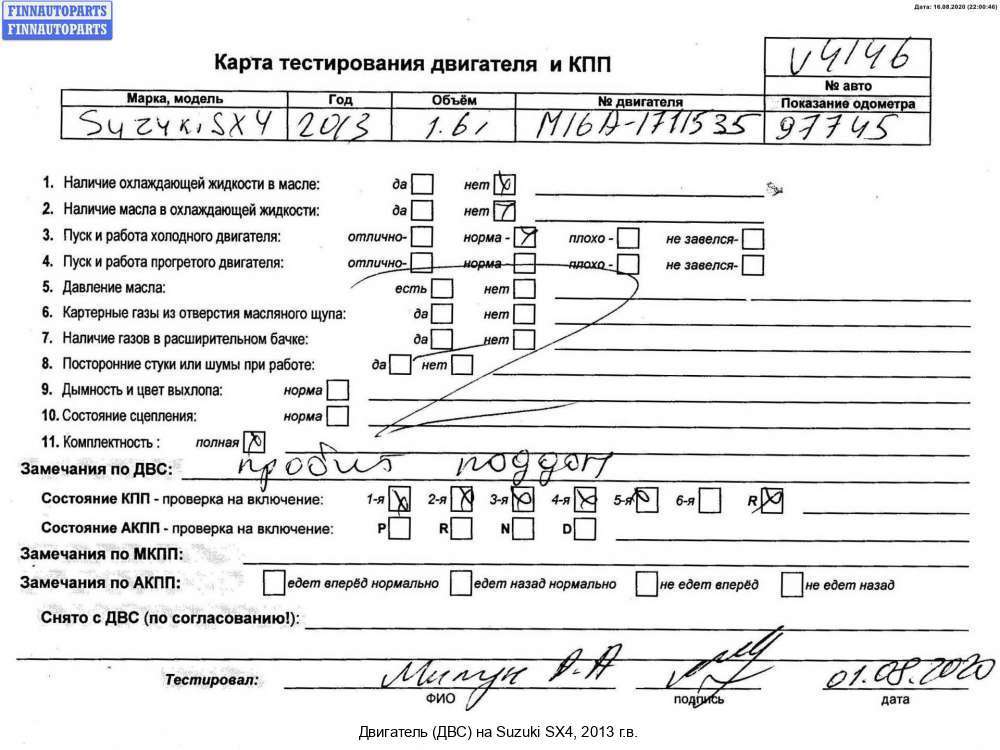 FINNAUTOPARTS
FINNAUTOPARTS
Дата: 16.08.2020 (22:00:46)
Карта тестирования двигателя и КПП
V4146
№ авто
Марка, модель Год Объём № двигателя Показание одометра
Suzuki SX4 2013 1.6i M16A-1711535 97745
1. Наличие охлаждающей жидкости в масле: да нет
2. Наличие масла в охлаждающей жидкости: да нет
3. Пуск и работа холодного двигателя: отлично- норма - плохо - не завелся-
4. Пуск и работа прогретого двигателя: отлично- норма - плохо - не завелся-
5. Давление масла: есть нет
6. Картерные газы из отверстия масляного щупа: да нет
7. Наличие газов в расширительном бачке: да нет
8. Посторонние стуки или шумы при работе: да нет
9. Дымность и цвет выхлопа: норма
10. Состояние сцепления: норма
11. Комплектность : полная
Замечания по ДВС: пробит поддон
Состояние КПП - проверка на включение: 1-я 2-я 3-я 4-я 5-я 6-я R
Состояние АКПП - проверка на включение: P R N D
Замечания по МКПП:
Замечания по АКПП: едет вперёд нормально едет назад нормально не едет вперёд не едет назад
Снято с ДВС (по согласованию!):
Тестировал: А.А 01.08.2020
ФИО подпись дата
Двигатель (ДВС) на Suzuki SX4, 2013 г.в.